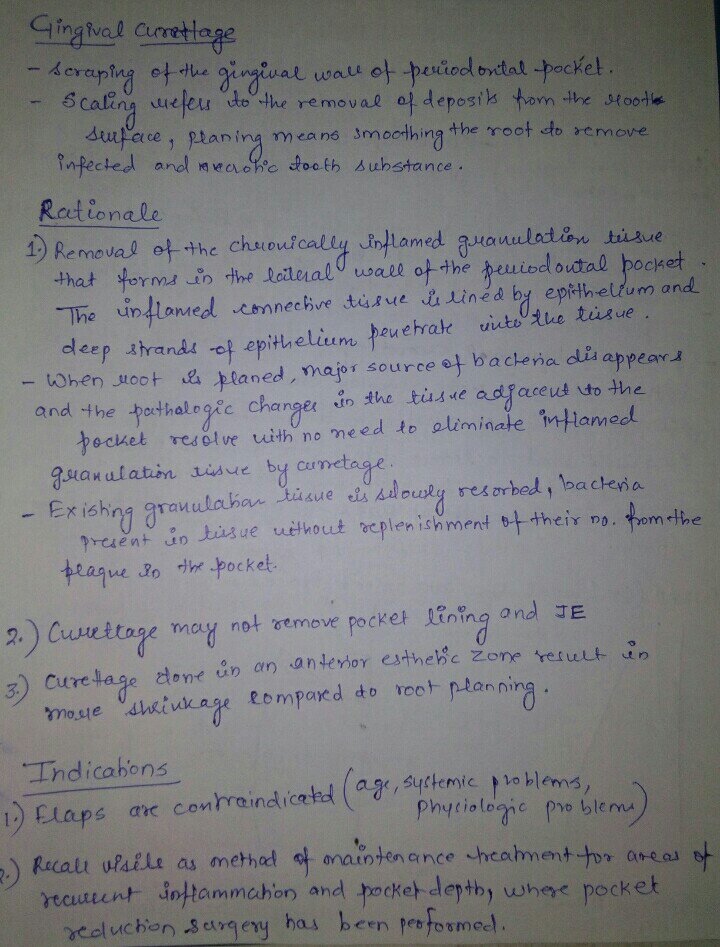 Gingival Curettage
- Scraping of the gingival wall of periodontal pocket.
- Scaling refers to the removal of deposits from the root
surface, planing means smoothing the root to remove
infected and necrotic tooth substance.
Rationale
1.) Removal of the chronically inflamed granulation tissue
that forms in the lateral wall of the periodontal pocket.
The inflamed connective tissue is lined by epithelium and
deep strands of epithelium penetrate into the tissue.
- When root is planed, major source of bacteria disappears
and the pathologic changes in the tissue adjacent to the
pocket resolve with no need to eliminate inflamed
granulation tissue by curretage.
- Existing granulation tissue is slowly resorbed, bacteria
present in tissue without replenishment of their no. from the
plaque in the pocket.
2.) Curettage may not remove pocket lining and JE
3.) Curetage done in an anterior esthetic zone result in
more shrinkage compared to root planning.
Indications
1.) Flaps are contraindicated (age, systemic problems,
physiologic problems)
2.) Recall visits as method of maintenance treatment for areas of
recurrent inflammation and pocket depth, where pocket
reduction surgery has been performed.